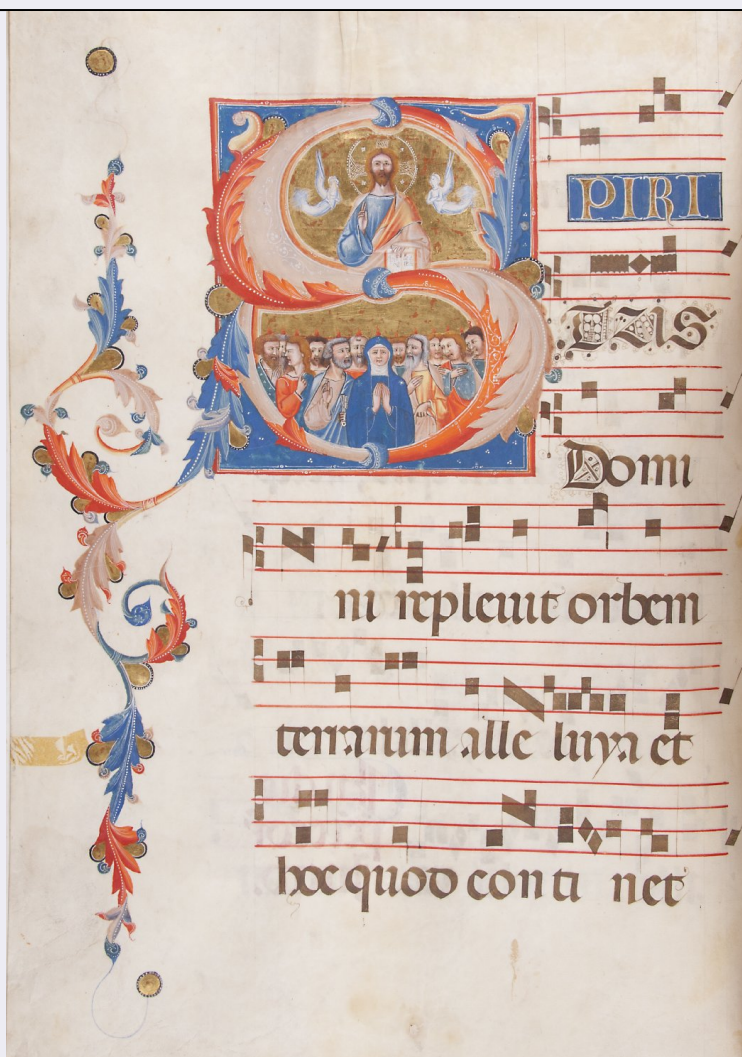 SPIRI
TUS
Domi
ni repleuit orbem
terrarum alle luya et
hoc quod con ti net